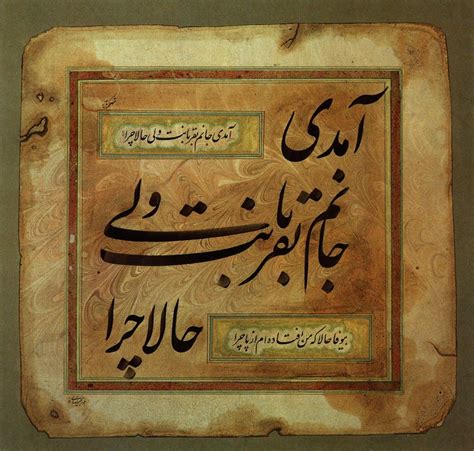 آمدی
آمدی جانم بقربانت ولی حالا چرا
جانم بقربانت ولی
حالا چرا
بیوفا حالا که من افتاده ام از پا چرا